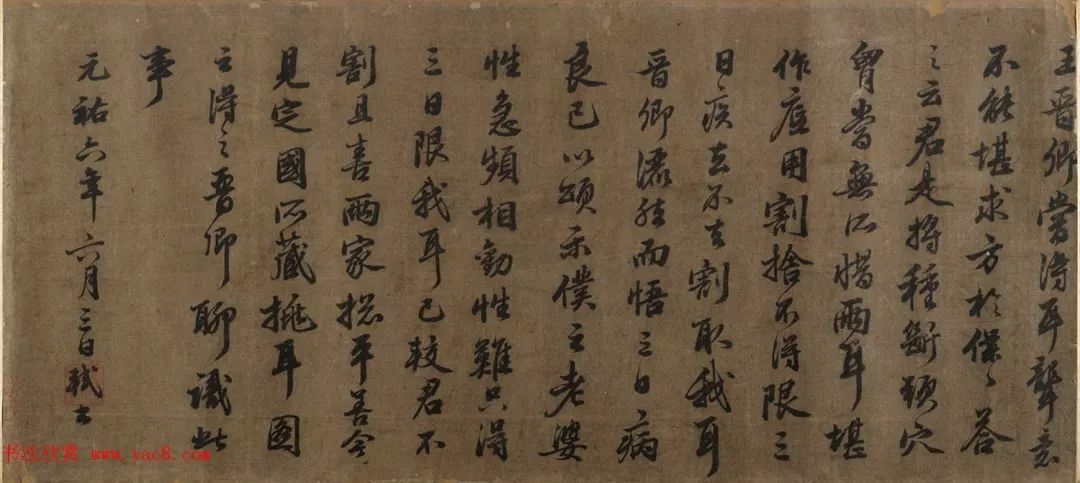 王晉卿嘗得耳聾意
不能堪求方於僕僕答
之云君是將種斷頭穴
胷當無所惜兩耳堪
作底用割捨不得限三
日疾去不去割取我耳
晉卿灑然而悟三日病
良已以頌示僕云老婆
性急頻相勸性難只得
三日限我耳已較君不
割且喜兩家摠平善今
見定國所藏挑耳圖
云得之晉卿聊識此
事
元祐六年六月二日軾書
书法欣赏 www.yac8.com